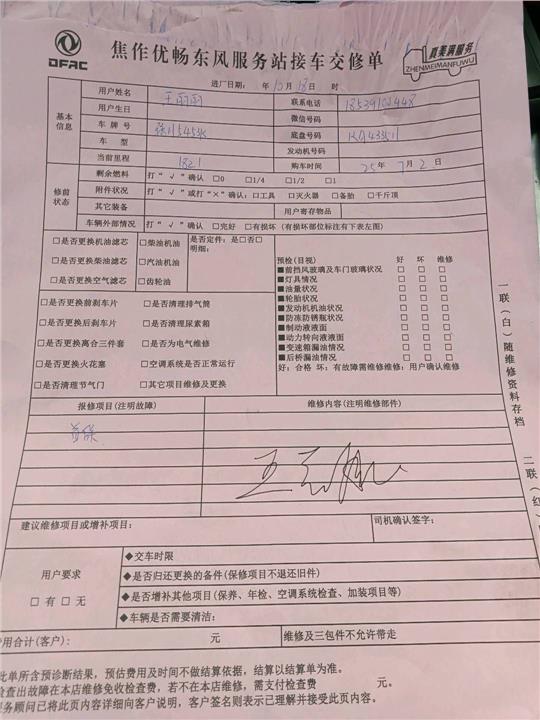 DFAC
焦作优畅东风服务站接车交修单
真美满服务
ZHENMEIMANFUWU
进厂日期: 年 10月 18日 时
基本信息
用户姓名 王雨雨 联系电话
用户生日 微信号码
车牌号 底盘号码
车型 发动机号码
当前里程 1821 购车时间 25年 7月 2日
修前状态
剩余燃料 打“√”确认 □0 □1/4 □1/2 □1
附件状况 打“√”或打“×”确认:□工具 □灭火器 □备胎 □千斤顶
其它装备 用户寄存物品
车辆外部情况 打“√”确认 □完好 □有损坏 (有损坏部位标注有下表左图)
□是否更换机油滤芯 □柴油机油 是否定件: 是□否□
明细:
□是否更换柴油滤芯 □汽油机油
□是否更换空气滤芯 □齿轮油
□是否更换前刹车片 □是否清理排气筒
□是否更换后刹车片 □是否清理尿素箱
□是否更换离合三件套 □是否为电气维修
□是否更换火花塞 □空调系统是否正常运行
□是否清理节气门 □其它项目维修及更换
预检(目视) 好 坏 维修
■前挡风玻璃及车门玻璃状况 □ □ □
■灯具情况 □ □ □
■油量状况 □ □ □
■轮胎状况 □ □ □
■发动机机油状况 □ □ □
■防冻防锈瓶状况 □ □ □
■制动液液面 □ □ □
■动力转向液液面 □ □ □
■变速箱漏油情况 □ □ □
■后桥漏油情况 □ □ □
好:合格 坏:有故障需维修维修:用户确认维修
报修项目(注明故障) 维修内容(注明维修部件)
首保
建议维修项目或增补项目: 司机确认签字:
用户要求
□有 □无
◆交车时限
◆是否归还更换的备件(保修项目不退还旧件)
◆是否增补其他项目(保养、年检、空调系统检查、加装项目等)
◆车辆是否需要清洁:
用合计(客户): 元 维修及三包件不允许带走
此单所含预诊断结果,预估费用及时间不做结算依据,结算以结算单为准。
检查出故障在本店维修免收检查费,若不在本店维修,需支付检查费 元。
务顾问已将此页内容详细向客户说明,客户签名则表示已理解并接受此页内容。
一联(白)随维修资料存档
二联(红)